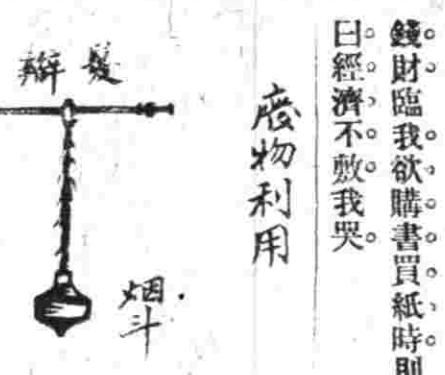 錢。財。臨。我。欲、購。書。買。紙、時。則
曰。經。濟。不。敷。我。哭。
廢物利用
髮辮
烟斗